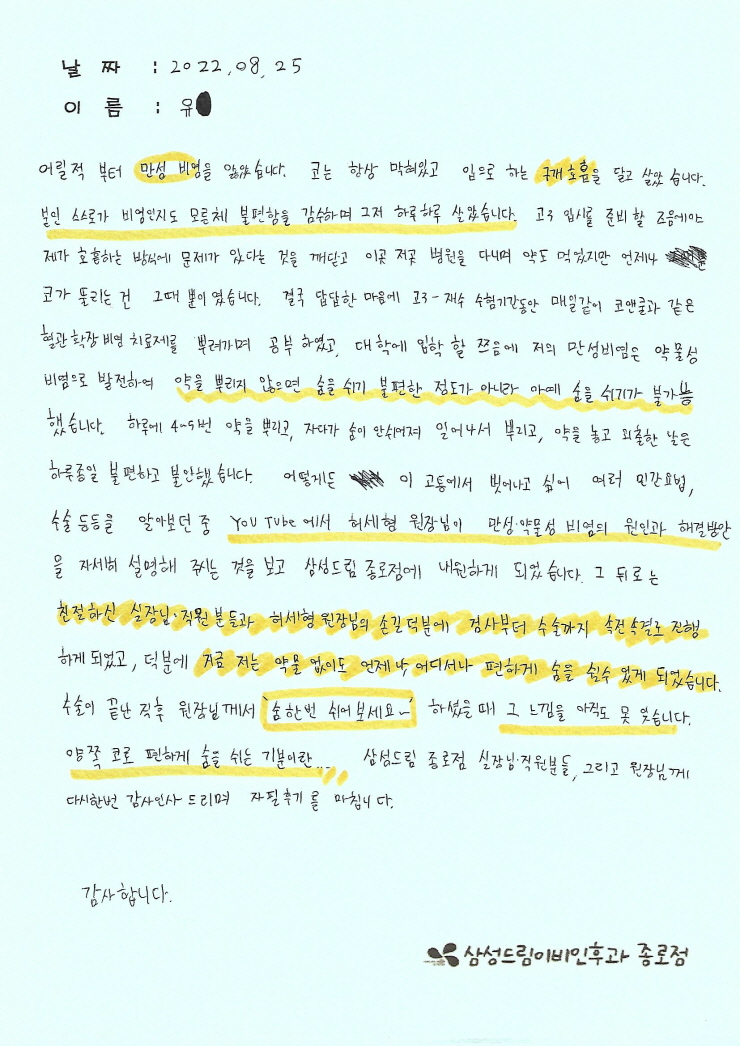 날 짜 : 2022.08.25
이 름 : 유
어릴적 부터 만성 비염을 앓았습니다. 코는 항상 막혀있고 입으로 하는 구개호흡을 달고 살았습니다.
본인 스스로가 비염인지도 모른체 불편함을 감수하며 그저 하루하루 살았습니다. 고3 입시를 준비할 즈음에야
제가 호흡하는 방식에 문제가 있다는 것을 깨닫고 이곳 저곳 병원을 다니며 약도 먹었지만 언제나
코가 뚫리는 건 그때 뿐이였습니다. 결국 답답한 마음에 고3-재수 수험기간동안 매일같이 코앤쿨과 같은
혈관확장비염 치료제를 뿌려가며 공부하였고, 대학에 입학 할 쯔음에 저의 만성비염은 약물성
비염으로 발전하여 약을 뿌리지 않으면 숨을 쉬기 불편한 정도가 아니라 아예 숨을 쉬기가 불가능
했습니다. 하루에 4~5번 약을 뿌리고, 자다가 숨이 안쉬어져 일어나서 뿌리고, 약을 놓고 외출한 날은
하루종일 불편하고 불안했습니다. 어떻게든 이 고통에서 벗어나고 싶어 여러 민간요법,
수술 등등을 알아보던 중 YOUTube에서 허세형 원장님이 만성·약물성 비염의 원인과 해결방안
을 자세히 설명해 주시는 것을 보고 삼성드림 종로점에 내원하게 되었습니다. 그 뒤로는
친절하신 실장님·직원분들과 허세형원장님의 손길 덕분에 검사부터 수술까지 속전속결로 진행
하게 되었고, 덕분에 지금 저는 약물 없이도 언제나, 어디서나 편하게 숨을 쉴수 있게 되었습니다.
수술이 끝난 직후 원장님께서 '숨한번 쉬어보세요~' 하셨을때 그 느낌을 아직도 못 잊습니다.
양쪽 코로 편하게 숨을 쉬는 기분이란... 삼성드림 종로점 실장님·직원분들, 그리고 원장님께
다시한번 감사인사 드리며 자필후기를 마칩니다.
감사합니다.
삼성드림이비인후과 종로점